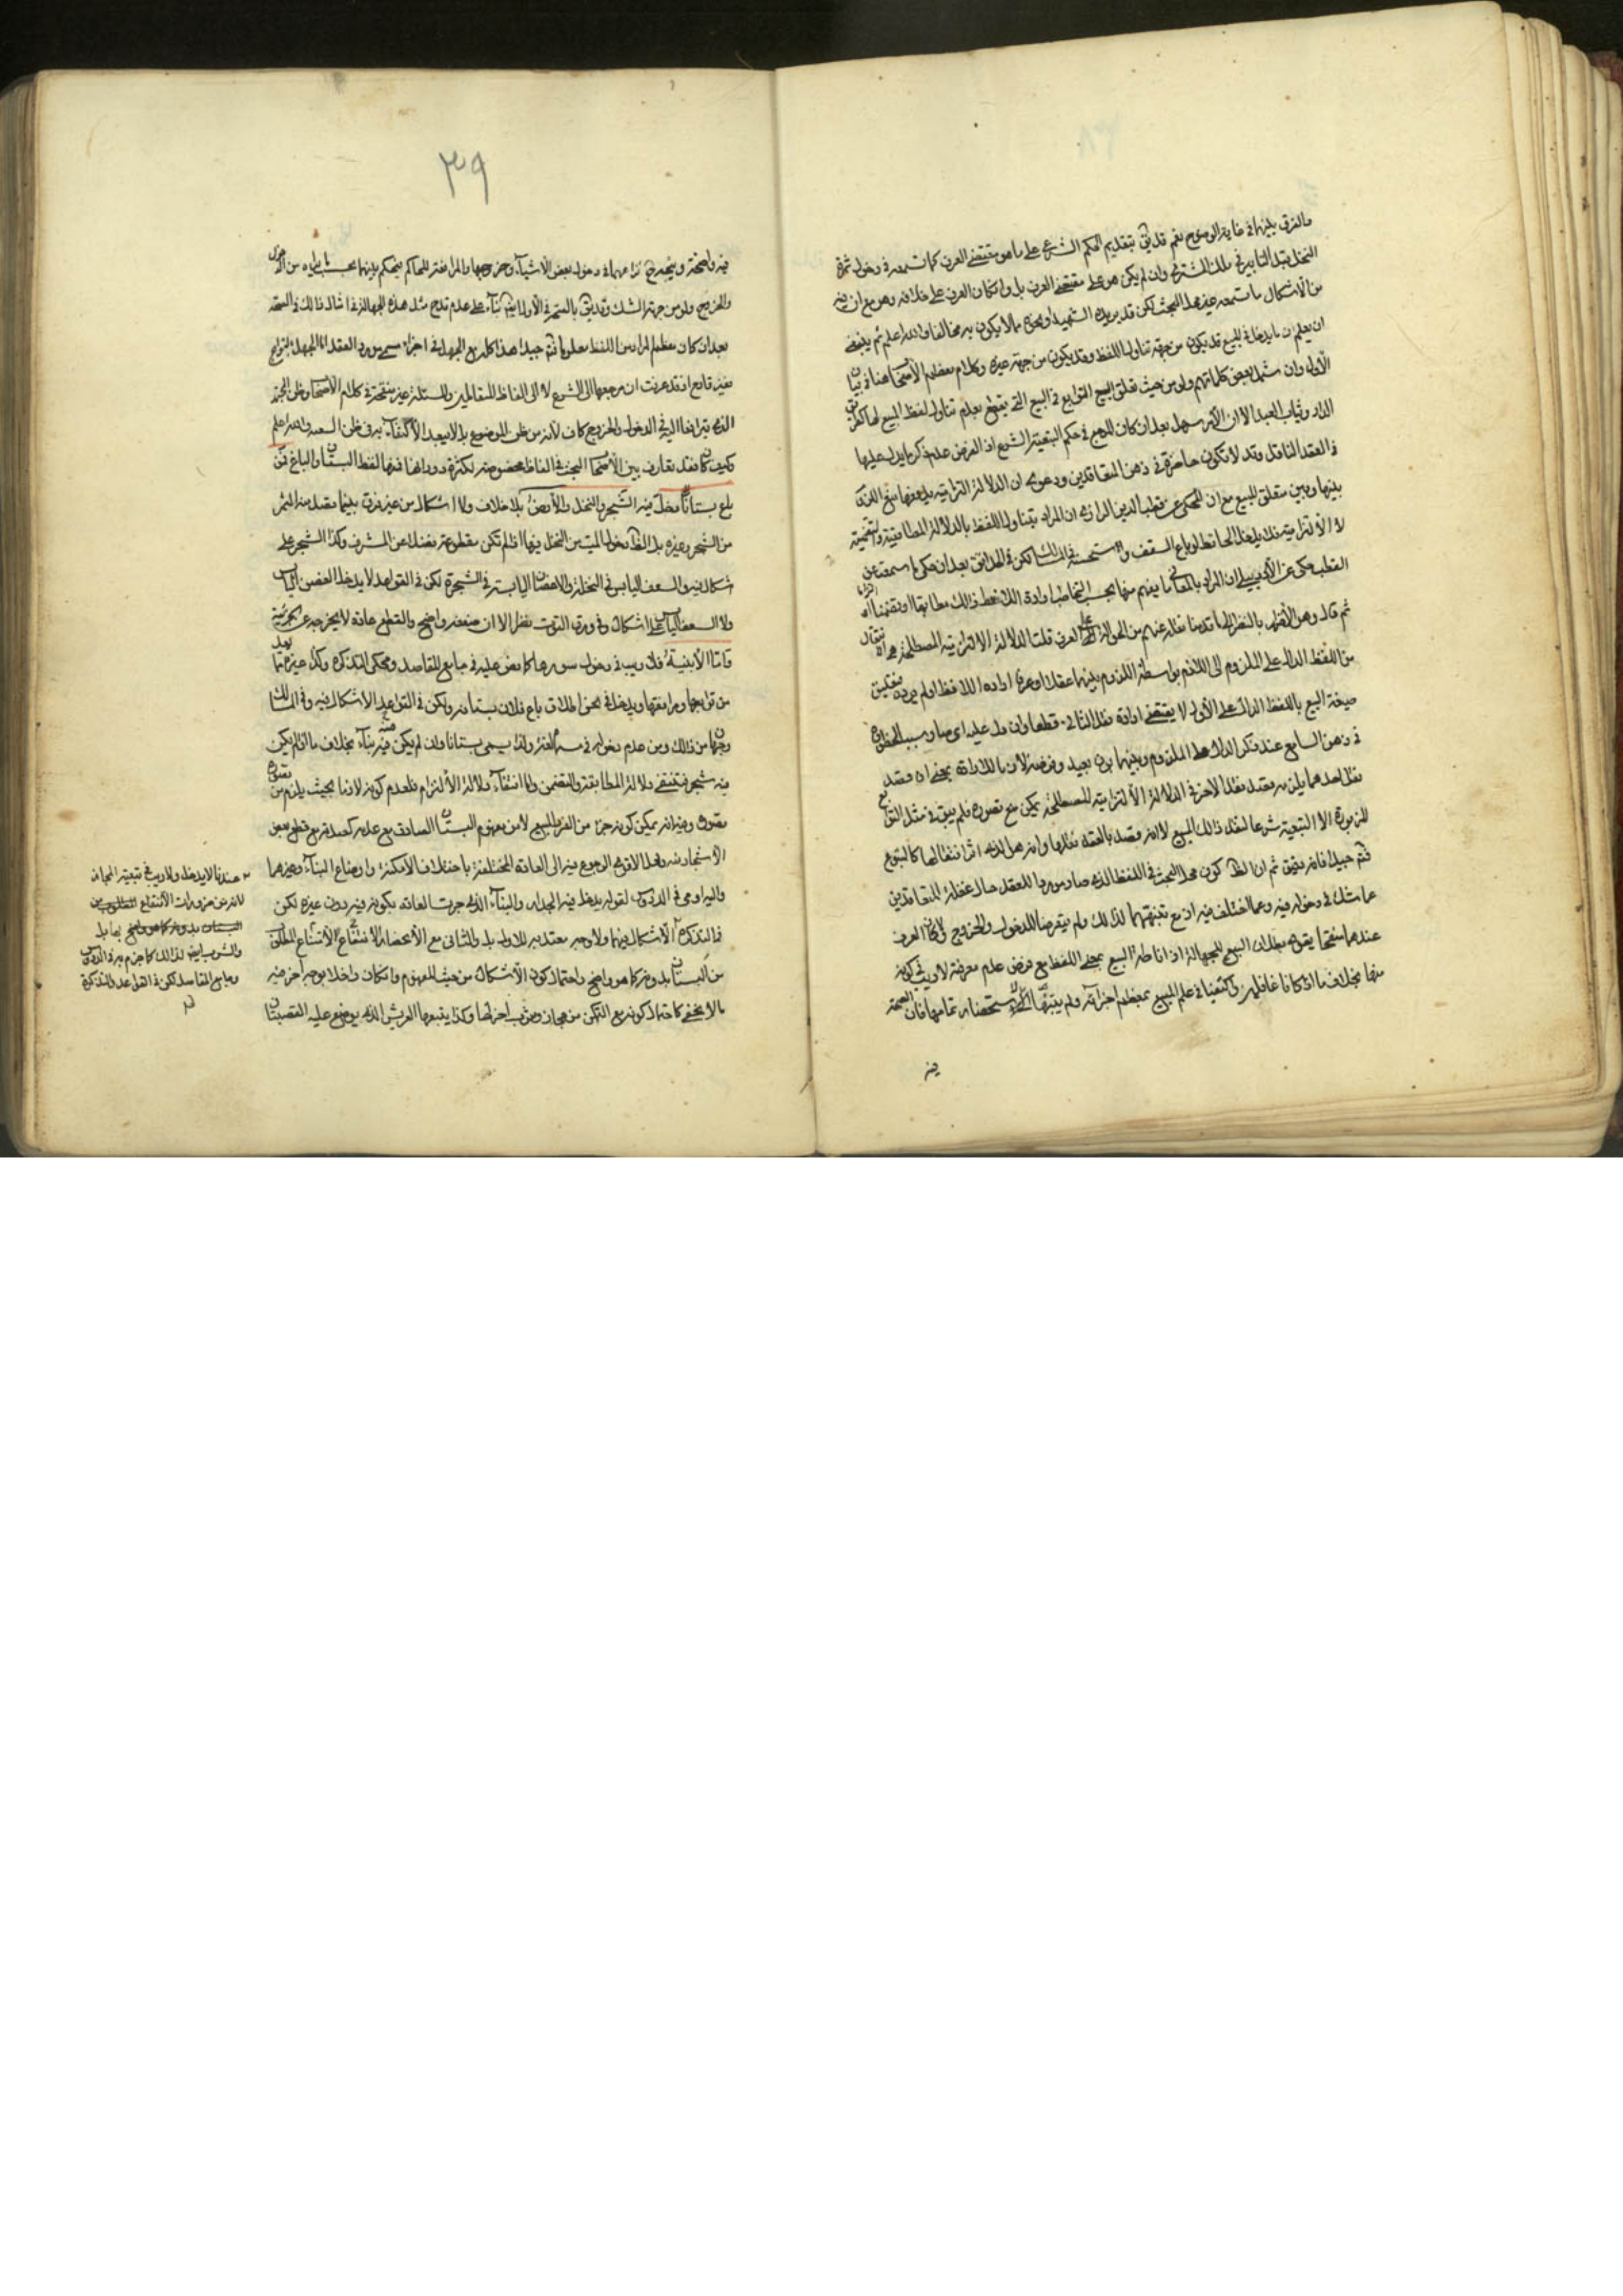 والفرق بينهما في غاية الوضوح نعم قد يق بتقديم الحكم الشرعي على ما هو مقتضى العرف كما تسمعه في دخول ثمرة
النخل قبل التأبير في ملك المشتري وان لم يكن هو على مقتضى العرف بل وان كان العرف على خلافه وهو مع ان فيه
من الاشكال ما تسمعه غير محل البحث لكن قد يريد الشهيد ونحوه ما لا يكون به مخالفا والله اعلم ثم ينبغي
ان يعلم ان ما يدخل في المبيع قد يكون من جهة تناول اللفظ وقد يكون من جهة غيره وكلام معظم الأصحاب هنا في بيان
الأول وان شمل بعض كلماتهم ولو من حيث تعلق البيع التوابع في البيع التي يقطع بعدم تناول لفظ المبيع لها كمفتاح
الدار وثياب العبد الا ان الأمر سهل بعد ان كان المرجع في حكم التبعية الشرع اذ الفرض عدم ذكر ما يدل عليها
في العقد الناقل وقد لا تكون حاضرة في ذهن المتعاقدين ودعوى ان الدلالة التزامية يدفعها منع اللزوم
بينها وبين متعلق البيع مع ان المحكي عن قطب الدين الرازي ان المراد بتناول اللفظ بالدلالة المطابقية والتضمنية
لا الالتزامية فلا يدخل الحائط لو باع السقف واستحسنه في المسالك لكن في الحدائق بعد ان حكى ما سمعته عن
القطب حكى عن الأردبيلي ان المراد بالمعاني ما يفهم منها بحسب التخاطب ارادة اللافظ ذلك مطابقا او تضمنا او التزاما
ثم قال وهو الأقرب بالنظر الى ما قدمنا نقله عنهم من الحوالة على العرف قلت الدلالة الالتزامية المصطلحة هي انتقال
من اللفظ الدال على الملزوم الى اللازم بواسطة اللزوم بينهما عقلا او عرفا اراده اللافظ او لم يرده فتعليق
صيغة البيع باللفظ الدال على الأول لا يقتضي ارادة نقل الثاني قطعا وان دل عليه اي صار سببا لخطوره
في ذهن السامع عند ذكر الدال على الملزوم وبينهما بون بعيد وفرض لازم الارادة بمعنى ان قصد
نقل احدهما يلزمه قصد نقل الآخر في الدلالة الالتزامية المصطلحة يمكن منع تصوره فلم يبق في مثل التوابع
المزبورة الا التبعية شرعا لنقل ذلك المبيع لا انه قصد بالعقد نقلها وانه هو الذي اثر انتقالها كالمتبوع
فتم جيدا فانه دقيق ثم ان الظ كون محل البحث في اللفظ الذي صار موردا للعقد حال غفلة المتعاقدين
عما شك في دخوله فيه وعما اختلف فيه اذ مع تنبههما لذلك ولم يتعرضا للدخول والخروج ولا كان العرف
عندهما منقحا يتجه بطلان البيع للجهالة اذ اناطة البيع بمعنى اللفظ مع فرض عدم معرفته لا ريب في كونه
منها بخلاف ما اذا كانا غافلين واكتفينا في علم المبيع بمعظم اجزائه ولم يتنبها الى استحضار تمامها فان الصحة
فيه
٣٩
فيه واضحة ويتجه ح نزاعهما في دخول بعض الأشياء وخروجها والمرافعة للحاكم فيحكم بينهما بحسب ما يراه من الدخول
والخروج ولو من جهة الشك وقد يق بالصحة في الأول ايض بناء على عدم قدح مثل هذه الجهالة في امثال ذلك في الصحة
بعد ان كان معظم المراد من اللفظ معلوما فتم جيدا هذا كله مع الجهل في اجزاء مسمى مورد العقد اما الجهل بالتوابع
فغير قادح اذ قد عرفت ان مرجعها الى الشرع لا الى الفاظ المتعاقدين والمسئلة غير منقحة في كلام الأصحاب وظن المجتهد
الذي يترافعا اليه في الدخول والخروج كاف لأنه من ظن الموضوع بل لا يبعد الاكتفاء به في ظن السعه والله اعلم
وكيف كان فقد تعارف بين الأصحاب البحث في الفاظ مخصوصة لكثرة دورانها فمنها لفظ البستان والباغ فمن
باع بستانا دخل فيه الشجر والنخل والأرض بلا خلاف ولا اشكال من غير فرق بينما قصد منه الثمر
من الشجر وغيره بل الظ دخول الميت من النخل فيها اذا لم تكن مقطوعة فضلا عن المشرف وكذا الشجر على
اشكال فيه والسعف اليابس في النخلة والاغصان اليابسة في الشجرة لكن في القواعد لا يدخل الغصن اليابس
ولا السعف اليابس على اشكال وفي ورق التوت نظر الا ان ضعفه واضح والقطع عادة لا يخرجه عن الجزئية
واما الأبنية فلا ريب في دخول سورها كما نص عليه في جامع المقاصد ومحكي التذكرة وكذا غيره مما يعد
من توابعها ومرافقها ويدخل في نحو اطلاق باع فلان بستانه ولكن في القواعد الاشكال فيه وفي المسالك
وجها من ذلك ومن عدم دخوله في مسماه لغة ولذا يسمى بستانا وان لم يكن فيه بناء بخلاف ما اذا لم يكن
فيه شجر فتنتفي دلالة المطابقة والتضمن واما انتفاء دلالة الالتزام فلعدم كونه لازما بحيث يلزم من تصوره
تصوره وفيه انه يمكن كونه جزء من الفرد المبيع لا من مفهوم البستان الصادق مع عدمه كصدقه مع قطع بعض
الأشجار منه ولعل الاقوى الرجوع فيه الى العادة المختلفة باختلاف الأمكنة واوضاع البناء وغيرهما
واليه اومى في الدروس لقوله يدخل فيه الجدار والبناء الذي جرت العادة بكونه فيه دون غيره لكن
في التذكرة الأشكال فيهما ولا وجه معتد به للأول بل والثاني مع الأعضاء لانتفاع الأنتفاع المطلوب
من البستان بدونه كما هو واضح واحتمال كون الأشكال من حيث المفهوم وان كان داخلا بوجه آخر فيه
ما لا يخفى كاحتمال كونه مع التمكن من مجاز وشرب اخر لها وكذا يتبعها العريش الذي يوضع عليه القضبان
عندنا لا يدخل ولا ريب في تبعية المجاز
لانه من ضرورات الأنتفاع المطلوب من
البستان بدونه كما هو واضح بها بل
والشرب ايض لذلك كما جزم به في الدروس
وجامع المقاصد لكن في القواعد والتذكرة